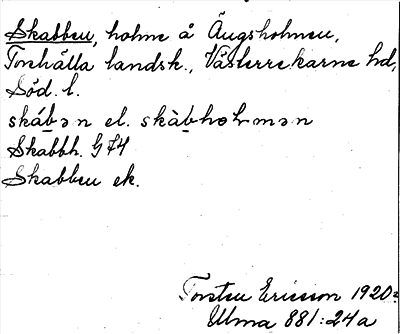 Skabben, holme å Ängsholmen,
Torshälla landsk., Västerrekarne hd,
Söd. l.
skáb̲ən el. skàb̲hɷlmən
Skabbh. G 74
Skabben ek.
Torsten Ericsson 1920
Ulma 881:24a